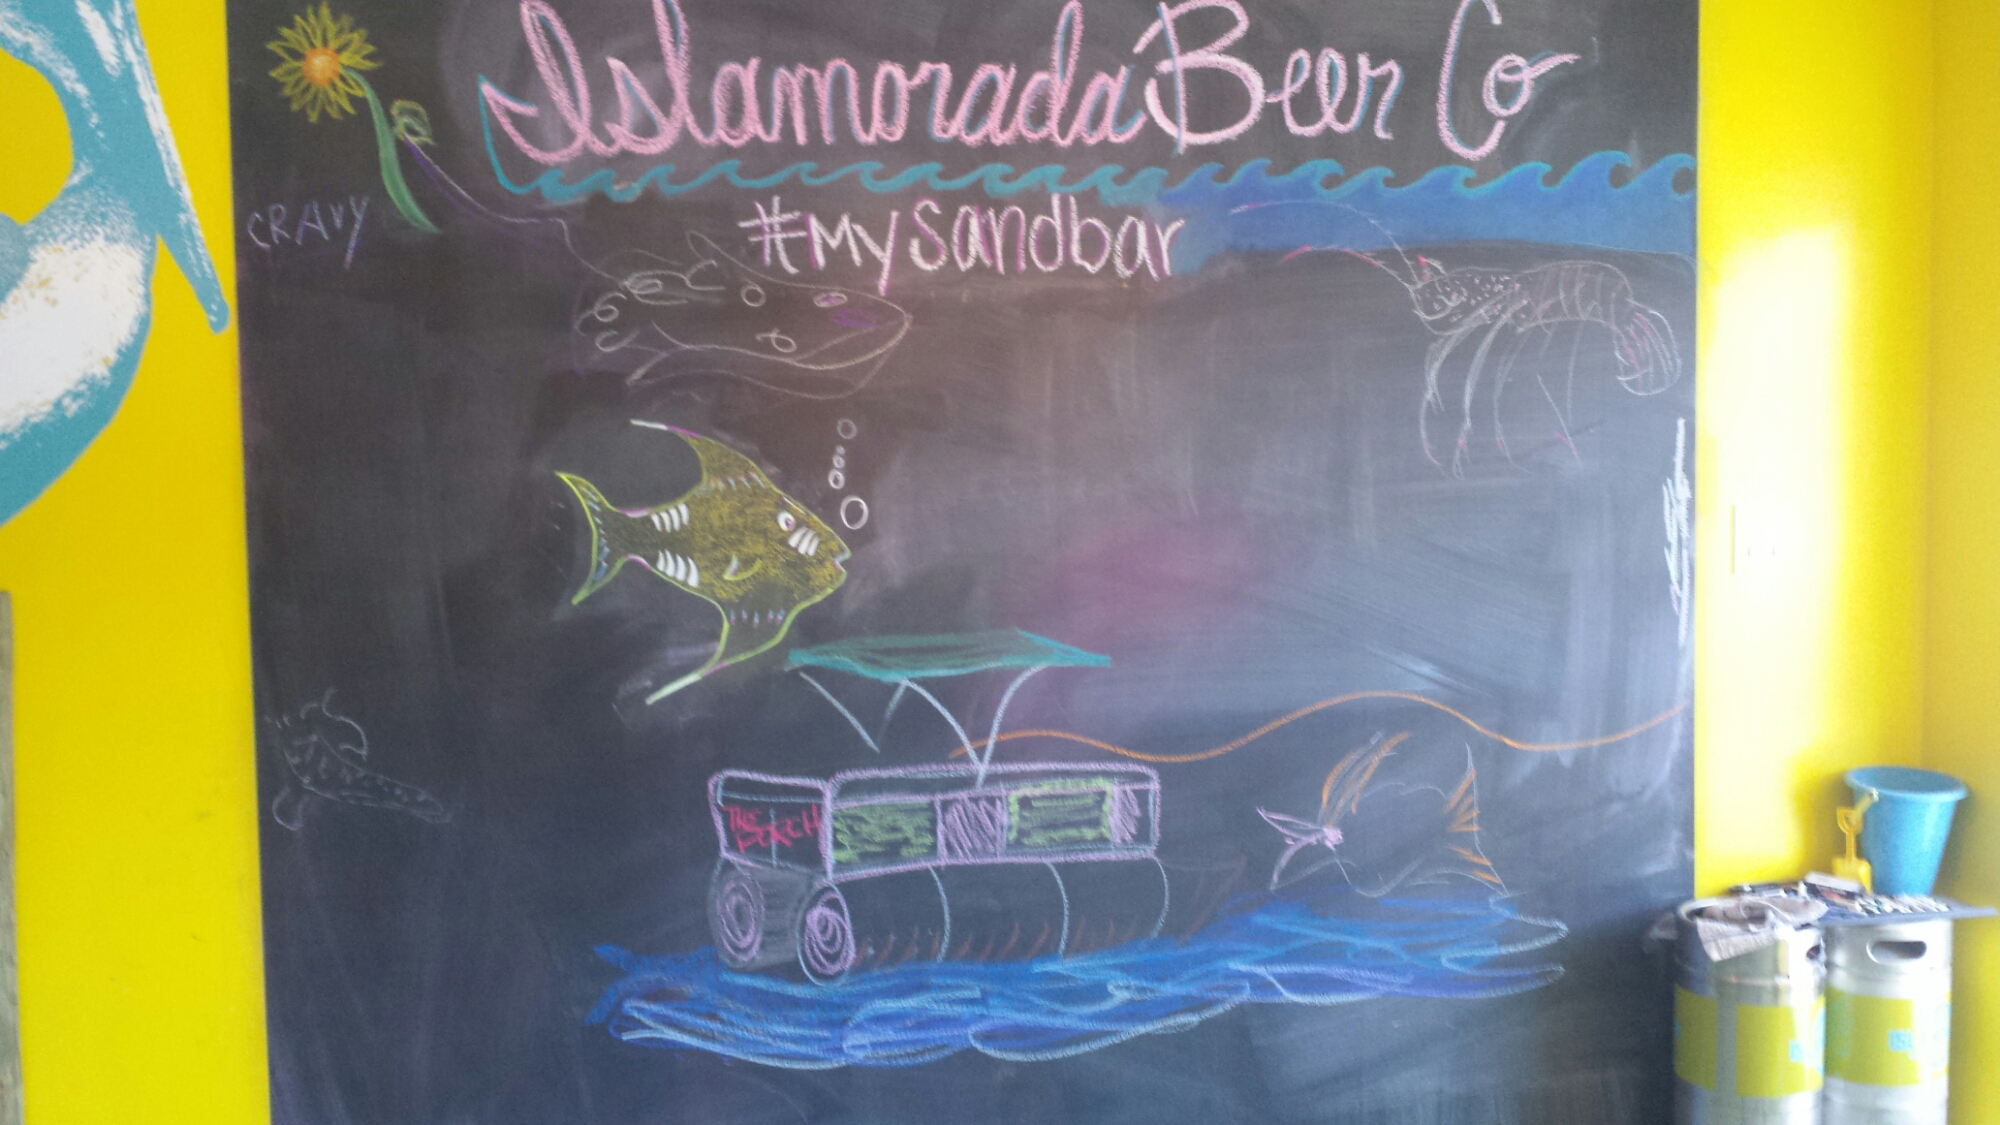 Islamorada Beer Co
#mysandbar
CRAVY
THE
PORCH